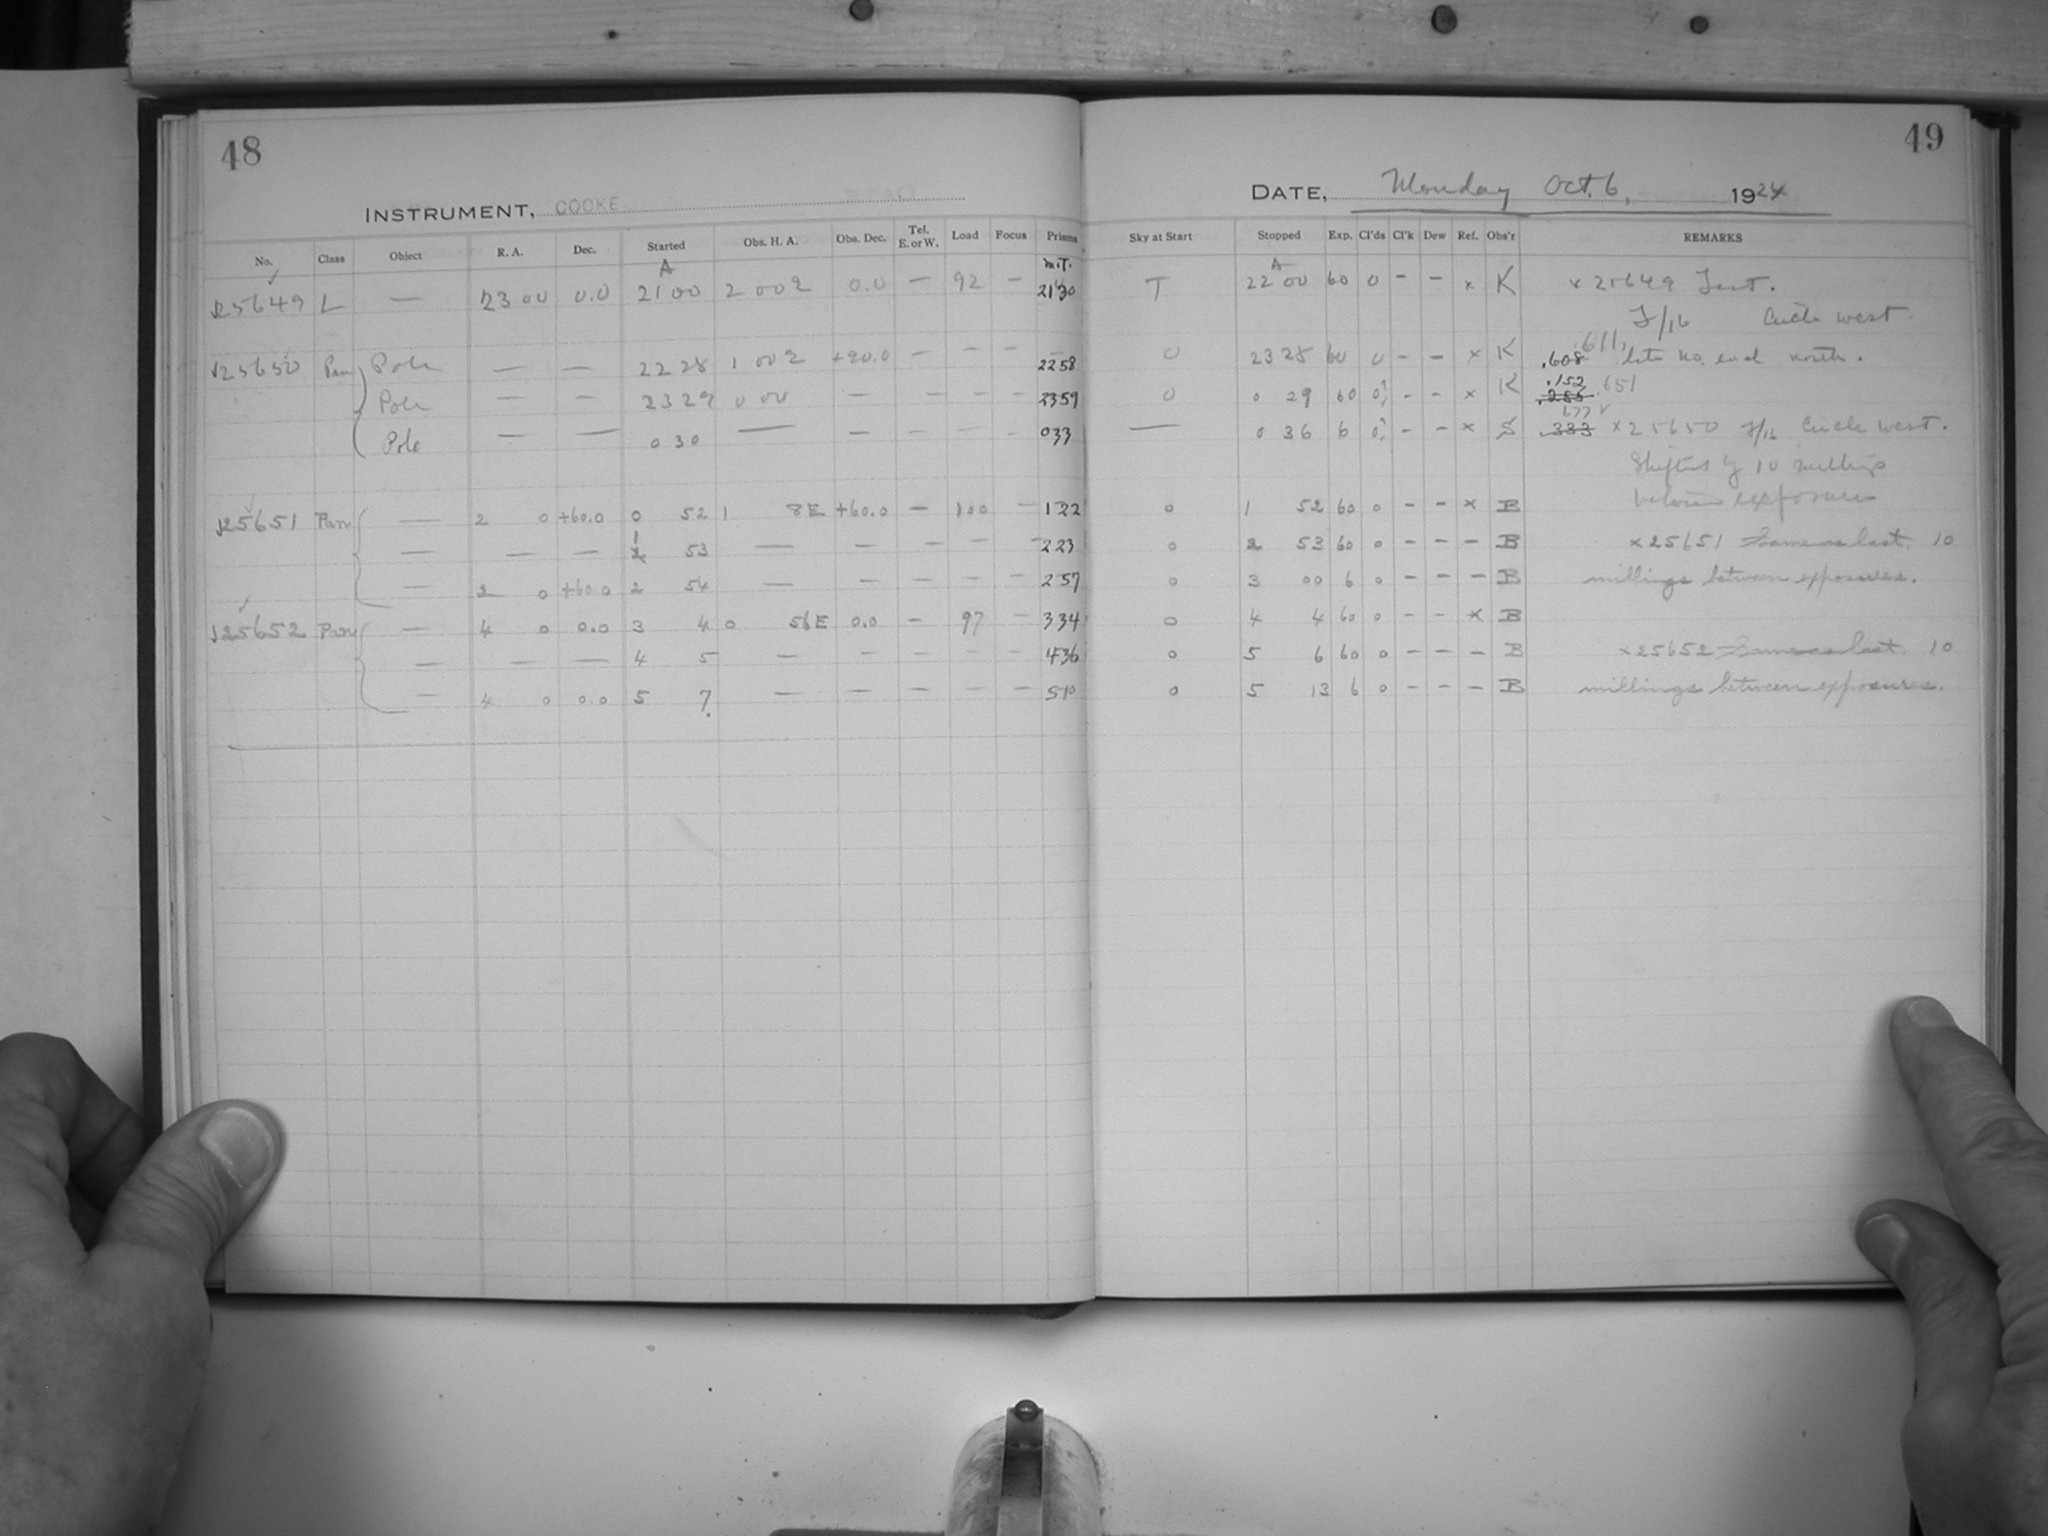 48
INSTRUMENT, COOKE
No. Class Object R. A. Dec. Started Obs. H. A. Obs. Dec. Tel. E. or W. Load Focus Prisms
A M.T.
25649 L — 23 00 0.0 21 00 2 00 2 0.0 — 92 — 2130
25650 Pan Pole — — 22 28 1 00 2 +90.0 — — — 2258
Pole — — 23 29 0 00 — — — — 2359
Pole — — 0 30 — — — — — 033
25651 Pan — 2 0 +60.0 0 52 1 8E +60.0 — 100 — 122
— — — 1 53 — — — — — 223
— 2 0 +60.0 2 54 — — — — — 257
25652 Pan — 4 0 0.0 3 4 0 56E 0.0 — 97 — 334
— — — 4 5 — — — — — 436
— 4 0 0.0 5 7 — — — — — 510
49
DATE, Monday Oct. 6, 1924
Sky at Start Stopped Exp. Cl'ds Cl'k Dew Ref. Obs'r REMARKS
A
T 22 00 60 0 - - x K x 25649 Test.
F/16 Circle west.
.611,
0 23 28 60 0 - - x K .608 no. end north.
.152
0 0 29 60 0? - - x K .255 .651
677
— 0 36 6 0? - - x S .333 x25650 F/16 Circle west.
Shifted by 10 millings
between exposures
0 1 52 60 0 - - x B
0 2 53 60 0 - - - B x25651 Same as last. 10
0 3 00 6 0 - - - B millings between exposures.
0 4 4 60 0 - - x B
0 5 6 60 0 - - - B x25652 Same as last. 10
0 5 13 6 0 - - - B millings between exposures.